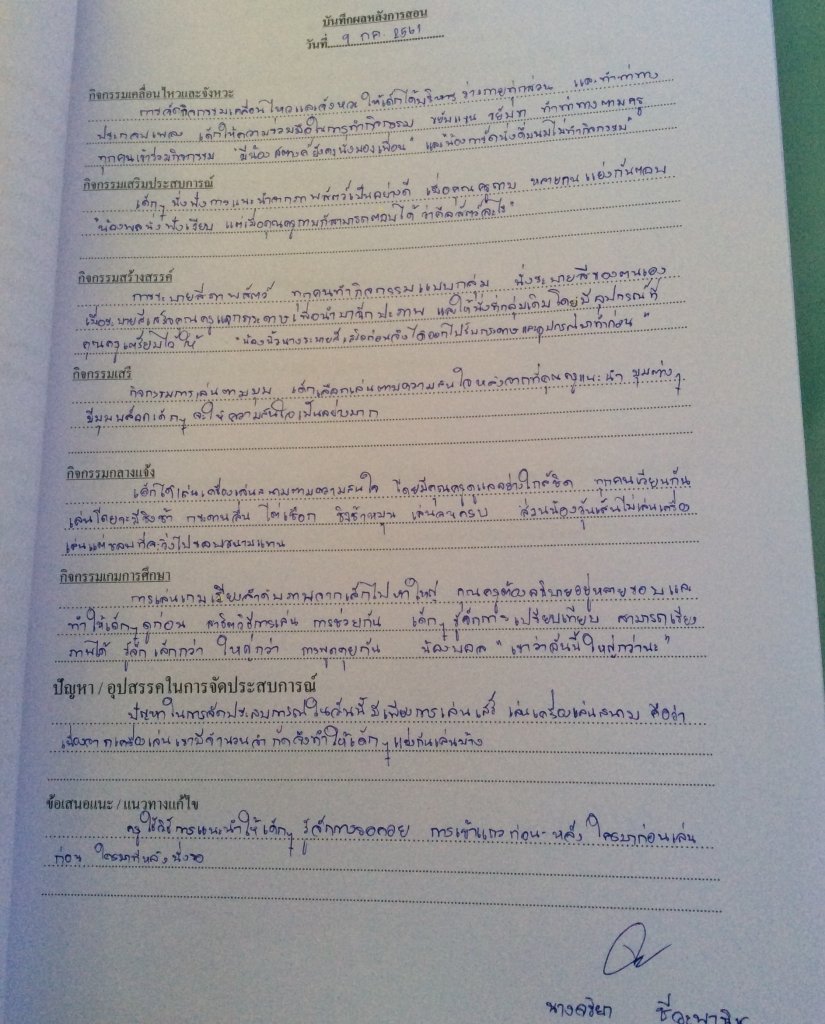 บันทึกผลหลังการสอน
วันที่ 9 กค. 2561
กิจกรรมเคลื่อนไหวและจังหวะ
การจัดกิจกรรมเคลื่อนไหวและจังหวะ ให้เด็กได้บริหารร่างกายทุกส่วน และทำท่าทาง
ประกอบเพลง เด็กให้ความร่วมมือในการทำกิจกรรม ขยับแขน ขยับขา ทำท่าทางตามครู
ทุกคนเข้าร่วมกิจกรรม "มีน้องสตางค์ยังคงนั่งมองเพื่อน" และ"น้องการ์ดนั่งดื่มนมไม่ทำกิจกรรม"
กิจกรรมเสริมประสบการณ์
เด็กๆ นั่งฟังการแนะนำจากภาพสัตว์เป็นอย่างดี เมื่อคุณครูถาม หลายคนแย่งกันตอบ
"น้องพลนั่งฟังเงียบ แต่เมื่อคุณครูถามก็สามารถตอบได้ ว่าคือสัตว์อะไร"
กิจกรรมสร้างสรรค์
การระบายสีภาพสัตว์ ทุกคนทำกิจกรรมแบบกลุ่ม นั่งระบายสีของตนเอง
เมื่อระบายสีเสร็จคุณครูแจกกระดาษเพื่อนำมาฉีกปะภาพ และให้นั่งที่กลุ่มเดิมโดยมีอุปกรณ์ที่
คุณครูเตรียมไว้ให้ "น้อง ระบายสีเสร็จก่อนจึงได้ออกไปรับกระดาษและอุปกรณ์มาทำก่อน"
กิจกรรมเสรี
กิจกรรมการเล่นตามมุม เด็กเลือกเล่นตามความสนใจหลังจากที่คุณครูแนะนำ มุมต่างๆ
มีมุมบล็อกเด็กๆ จะให้ความสนใจเป็นอย่างมาก
กิจกรรมกลางแจ้ง
เด็กได้เล่นเครื่องเล่นสนามตามความสนใจ โดยมีคุณครูดูแลอย่างใกล้ชิด ทุกคนเวียนกัน
เล่นโดยจะมีชิงช้า กระดานลื่น ไต่เชือก ชิงช้าหมุน เล่นจนครบ ส่วนน้องวุ้นเส้นไม่เล่นเครื่อง
เล่นแต่ชอบที่จะวิ่งไปรอบสนามแทน
กิจกรรมเกมการศึกษา
การเล่นเกมเรียงลำดับภาพจากเล็กไปหาใหญ่ คุณครูต้องอธิบายอยู่หลายรอบและ
ทำให้เด็กๆ ดูก่อน สาธิตวิธีการเล่น การช่วยกัน เด็กๆ รู้จักการเปรียบเทียบ สามารถเรียง
ภาพได้ รู้จัก เล็กกว่า ใหญ่กว่า การพูดคุยกัน น้องบอล "เขาว่าอันนี้ใหญ่กว่านะ"
ปัญหา / อุปสรรคในการจัดประสบการณ์
ปัญหาในการจัดประสบการณ์ในวันนี้ มีเพียงการเล่นเสรี เล่นเครื่องเล่นสนาม คือว่า
เนื่องจากเครื่องเล่นเรามีจำนวนจำกัดจึงทำให้เด็กๆ แย่งกันเล่นบ้าง
ข้อเสนอแนะ / แนวทางแก้ไข
ครูใช้วิธีการแนะนำให้เด็กๆ รู้จักการรอคอย การเข้าแถวก่อน-หลัง ใครมาก่อนเล่น
ก่อน ใครมาทีหลังนั่งรอ